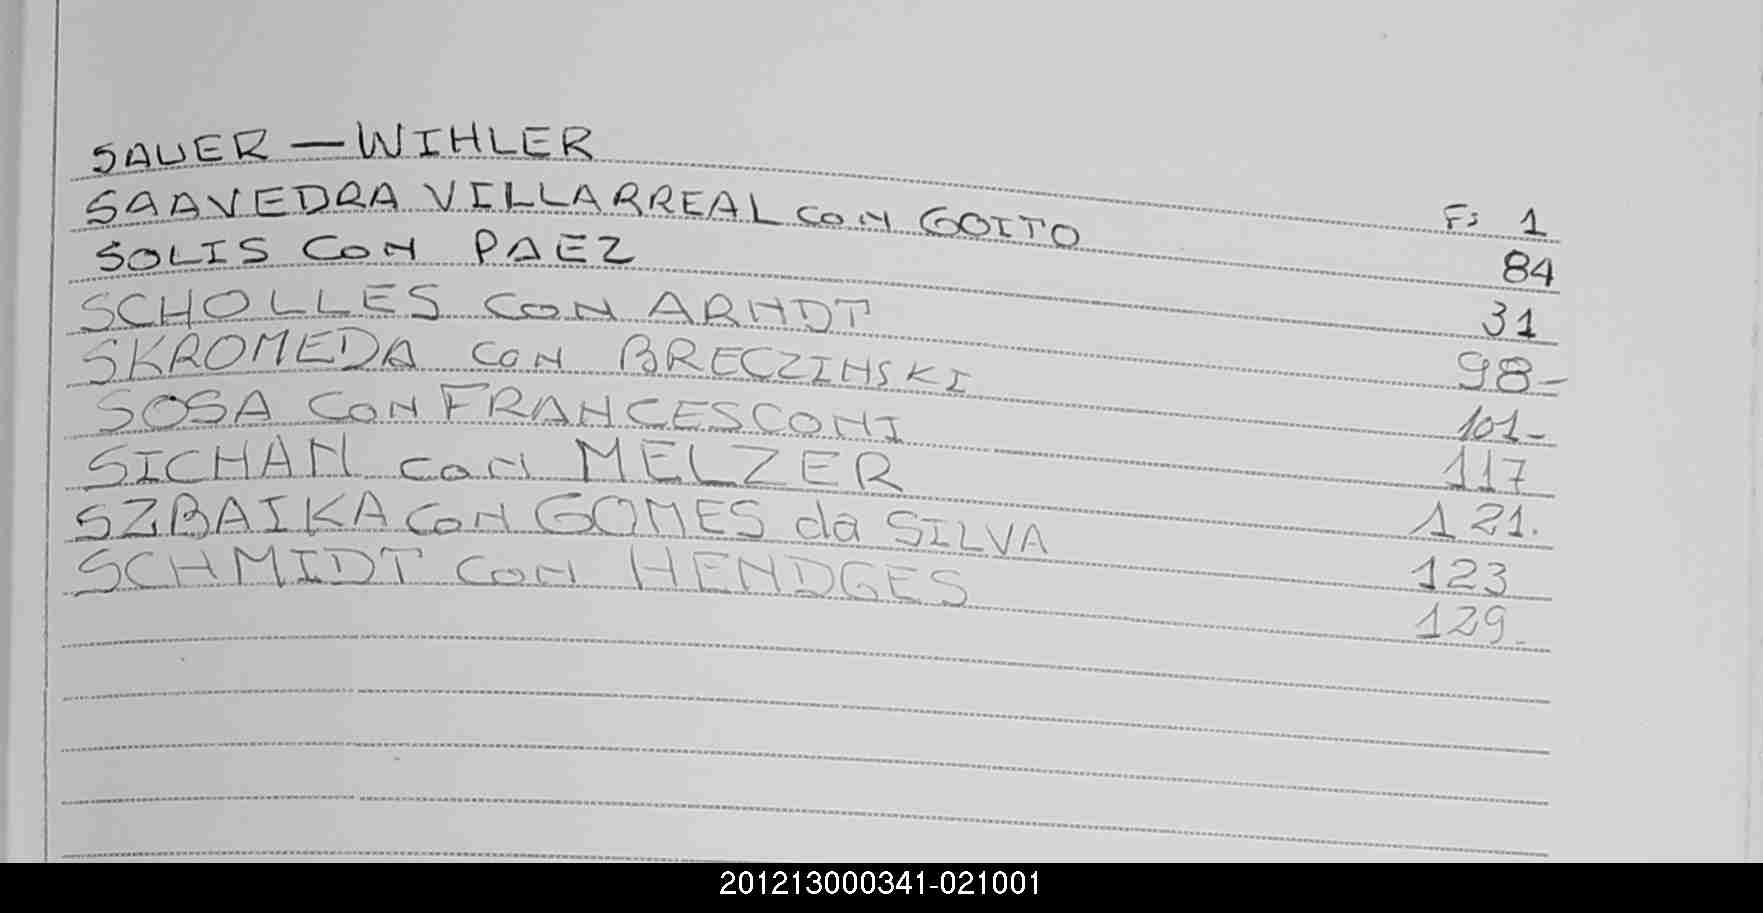 SAUER — WIHLER F: 1
SAAVEDRA VILLARREAL con GOITO 84
SOLIS CON PAEZ 31
SCHOLLES CON ARNDT 98-
SKROMEDA CON BRECZINSKI 101-
SOSA CON FRANCESCONI 117
SICHAN con MELZER 121.
SZBAIKA CON GOMES da SILVA 123
SCHMIDT con HENDGES 129.
201213000341-021001